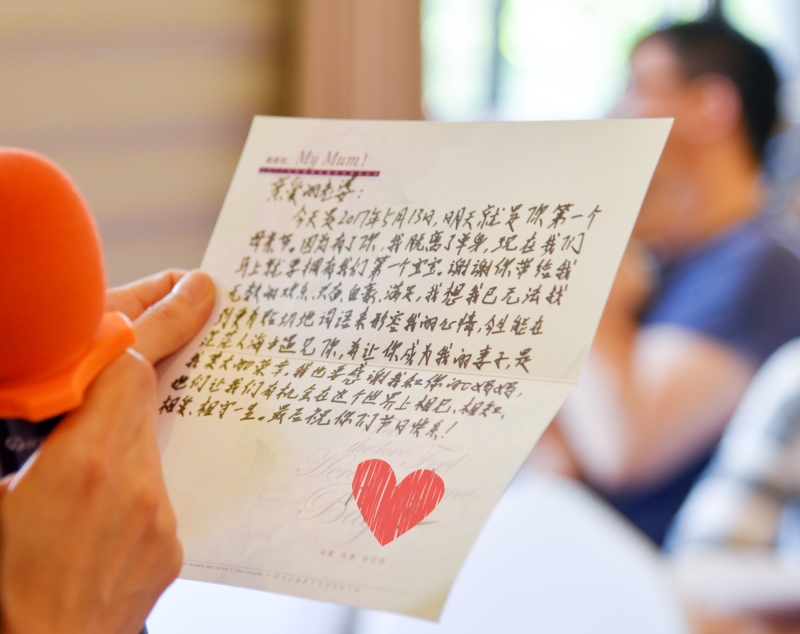 My Mum!
亲爱的老婆:
今天是2017年5月13日,明天就是你第一个
母亲节,因为有了你,我脱离了单身,现在我们
马上就要拥有我们第一个宝宝.谢谢你带给我
无数的欢乐、自豪、满足,我想我已无法找
到更有贴切地词语来形容我的心情,今生能在
茫茫人海中遇见你,并让你成为我的妻子,是
我莫大的荣幸.我也要感谢我和你的妈妈,
她们让我们有机会在这个世界上相巳、相知、
相爱、相守一生。最后祝你们节日快乐!